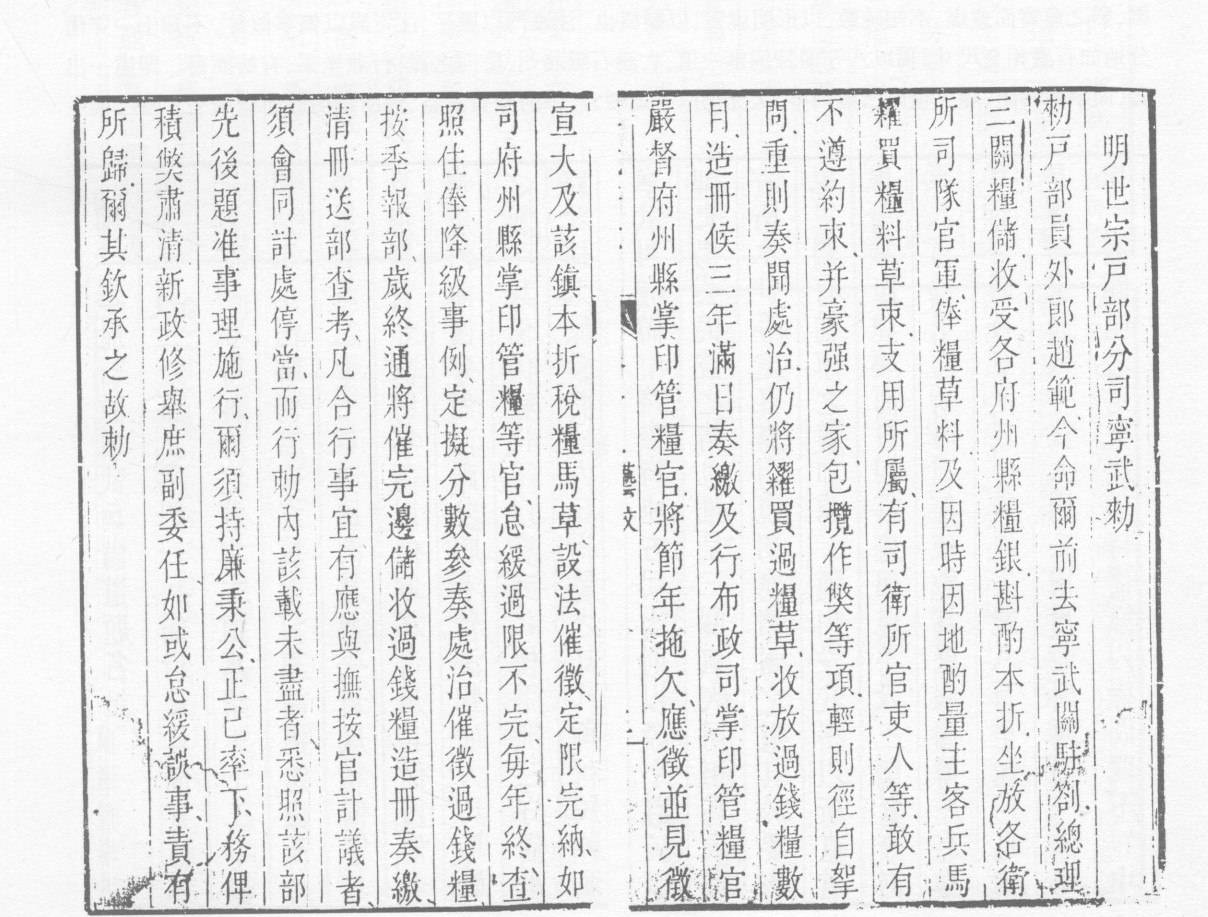 明世宗戸部分司寧武勅
勅戸部員外郎趙範今命爾前去寧武關駐劄總理
三關糧儲收受各府州縣糧銀斟酌本折坐放各衛
所司隊官軍俸糧草料及因時因地酌量主客兵馬
糴買糧料草束支用所屬有司衛所官吏人等敢有
不遵約束并豪强之家包攬作獘等項輕則徑自拏
問重則奏聞處治仍將糴買過糧草收放過錢糧數
目造冊候三年滿日奏繳及行布政司掌印管糧官
嚴督府州縣掌印管糧官將節年拖欠應徵並見徵
藝文
宣大及該鎮本折稅糧馬草設法催徵定限完納如
司府州縣掌印管糧等官怠緩過限不完每年終查
照住俸降級事例定擬分數參奏處治催徵過錢糧
按季報部歲終通將催完邊儲收過錢糧造冊奏繳
清冊送部查考凡合行事宜有應與撫按官計議者
須會同計處停當而行勅內該載未盡者悉照該部
先後題准事理施行爾須持廉秉公正已率下務俾
積獘肅清新政修舉庶副委任如或怠緩誤事責有
所歸爾其欽承之故勅